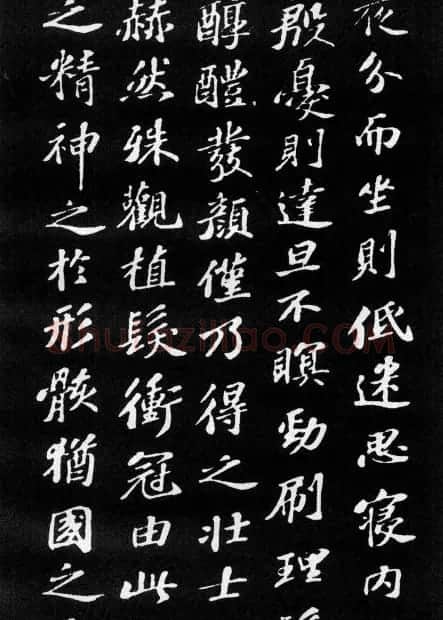 夜分而坐則低迷思寢內
殷憂則達旦不瞑勁刷理
醇醴發顏僅乃得之壯士
赫然殊觀植髮衝冠由此
之精神之於形骸猶國之
shufaziliao.com